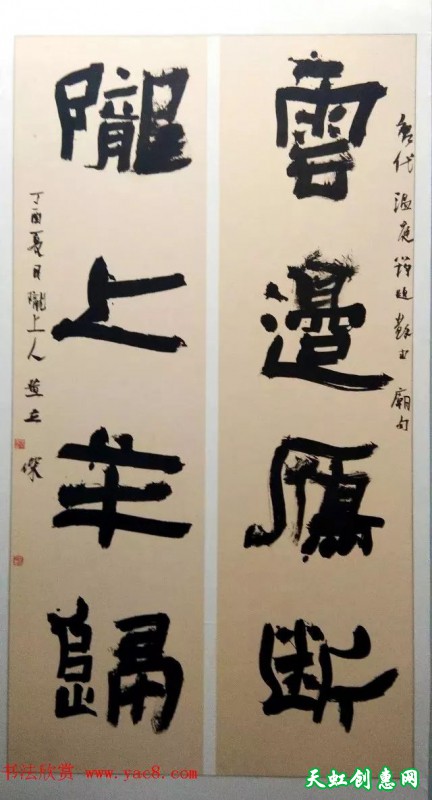 唐代温庭筠蘇武廟句
雲邊鴈斷
隴上羊歸
丁酉夏月隴上人
书法欣赏 www.yac8.com
天虹创意网